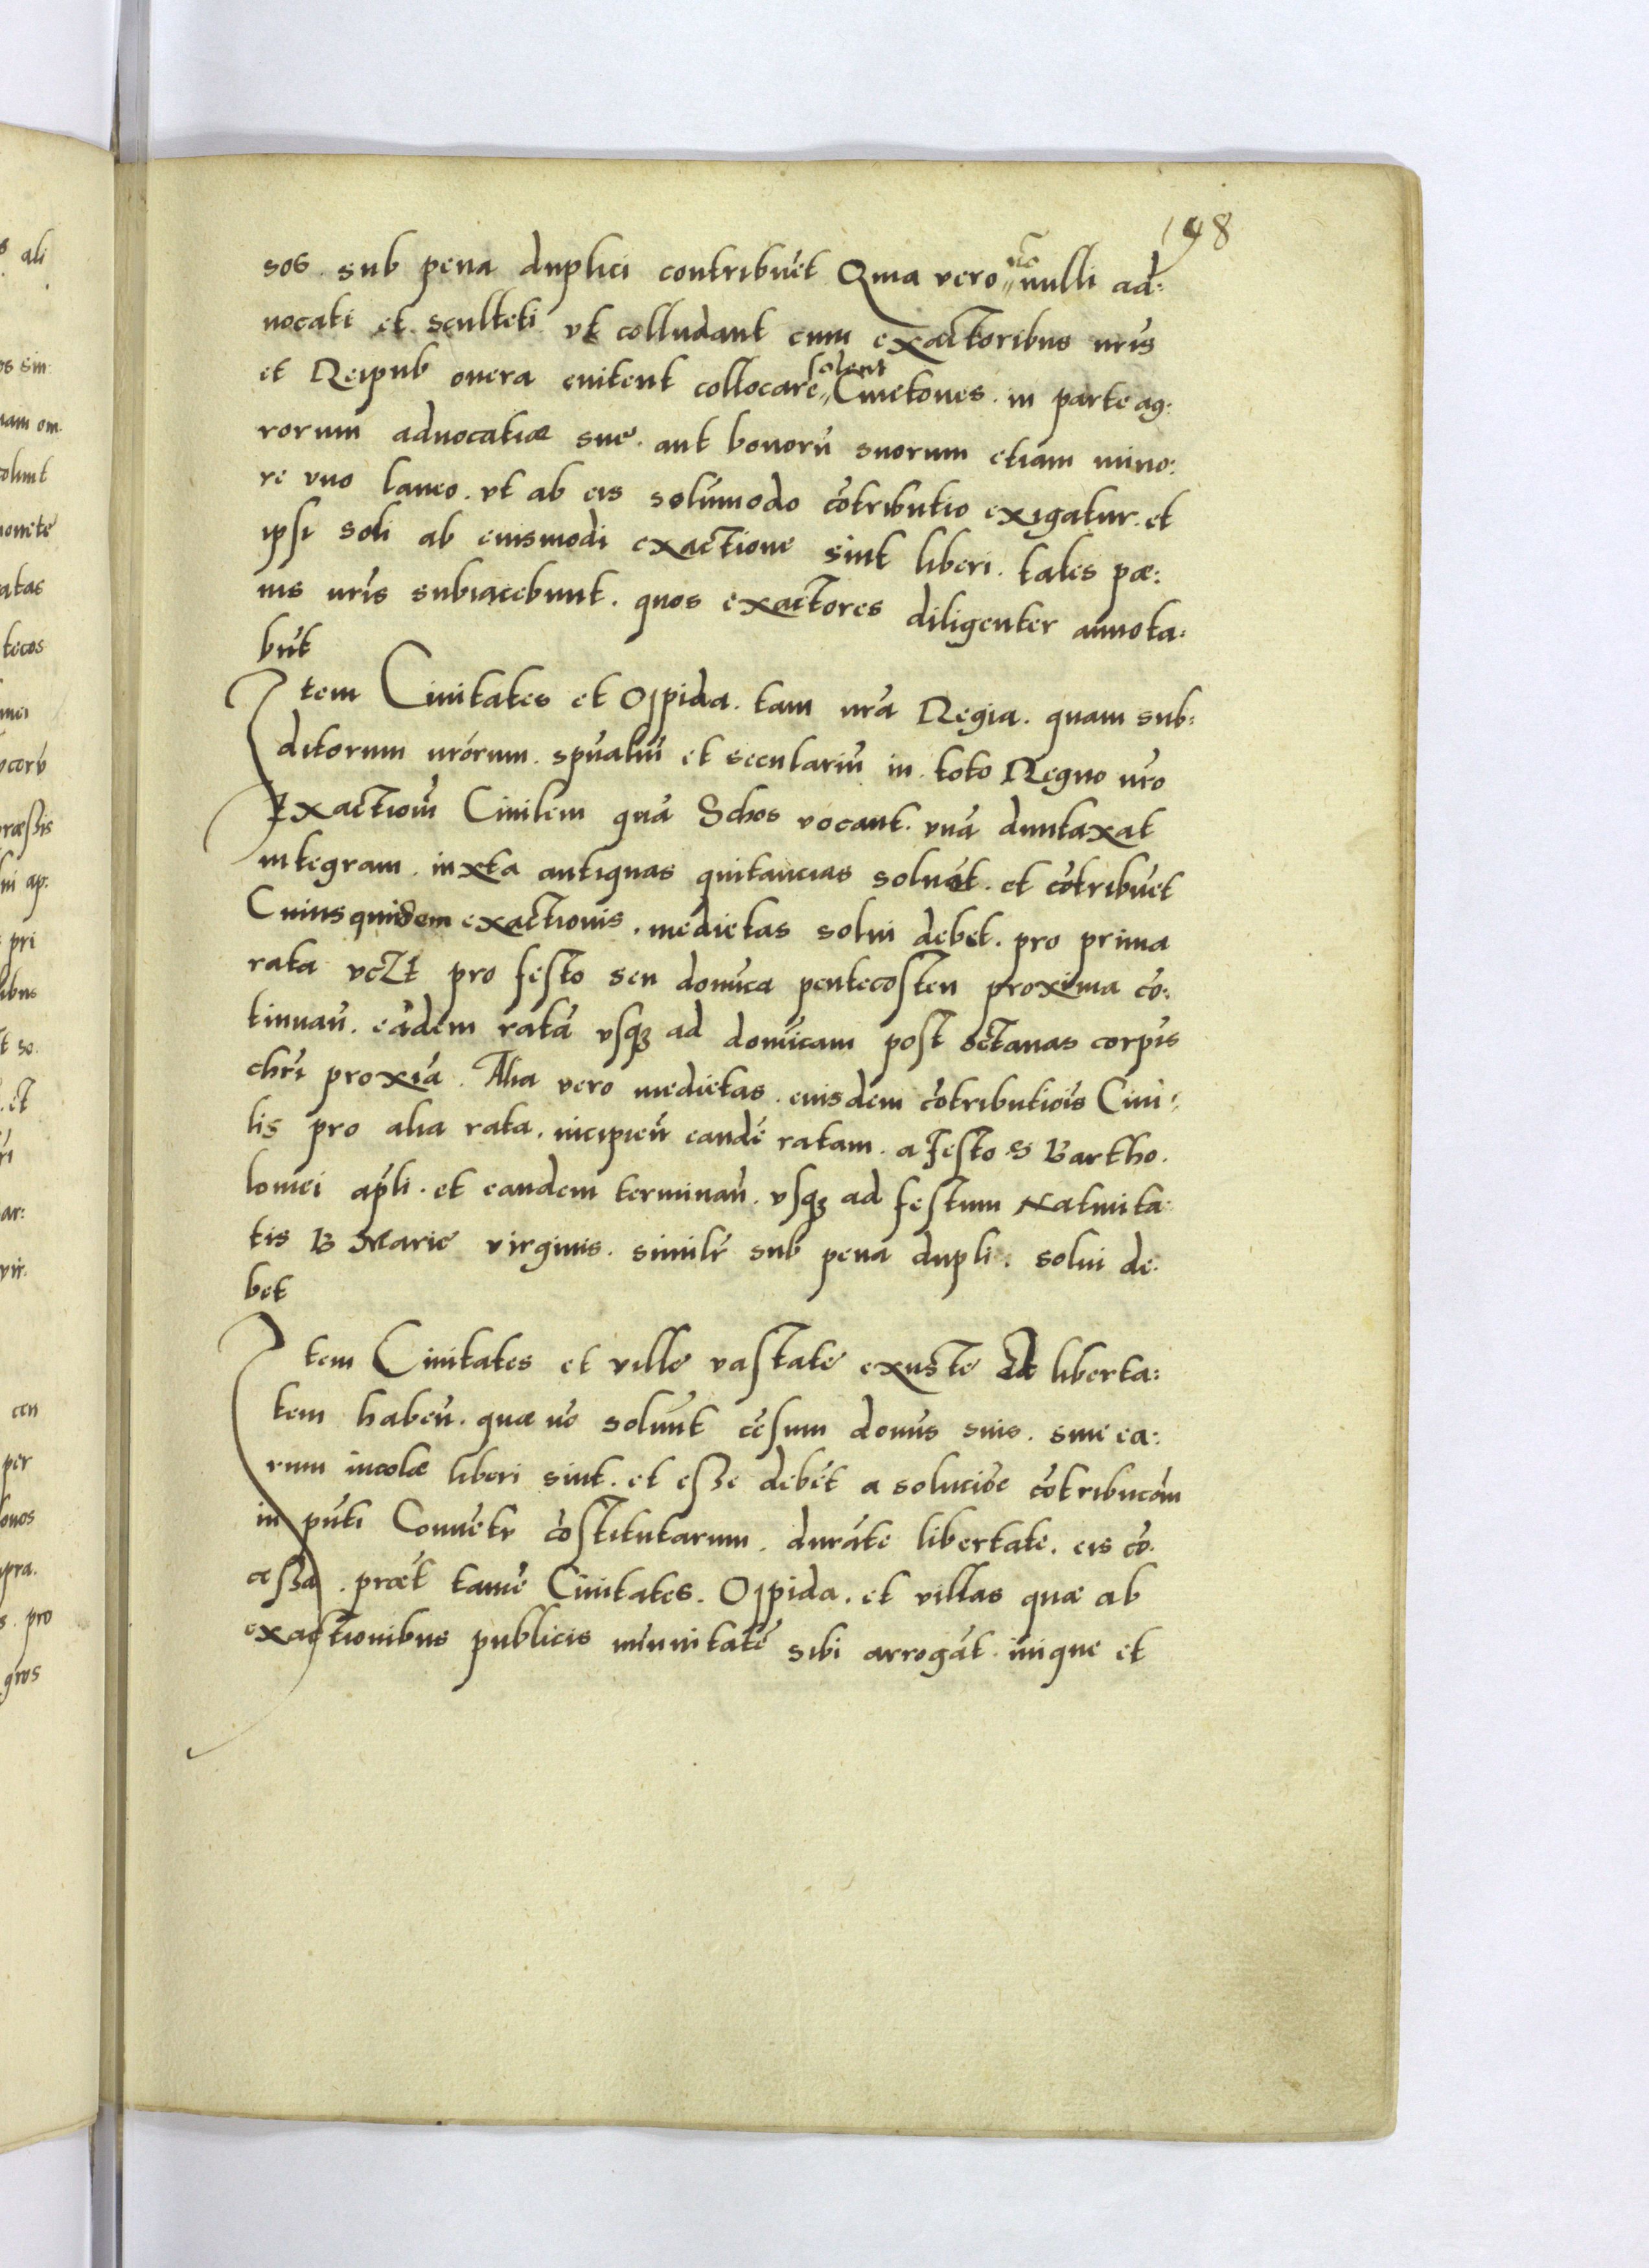 198
sos. sub pena duplici contribuēt Quia vero nō nulli ad:
uocati et sculteti vt colludant cum exactoribus nr̄is
et Reipub onera euitent collocare solent Cmetones. in parte ag:
rorum aduocatiæ sue. aut bonorū suorum etiam mino:
re vno laneo. vt ab eis solūmodo cōtributio exigatur. et
ipsi soli ab eiusmodi exactione sint liberi. tales pæ:
nis nr̄is subiacebunt. quos exactores diligenter annota:
būt
Item Ciuitates et Oppida. tam nr̄a Regia. quam sub:
ditorum nr̄orum. spūaliū et seculariū in toto Regno nr̄o
Exactionē Ciuilem quā Schos vocant. vnā duntaxat
integram. iuxta antiquas quitancias soluāt. et cōtribuēt
Cuiusquidem exactionis. medietas solui debet. pro prima
rata vcȝt pro festo seu domīca pentecosten proxima cō:
tinuan̄. eādem ratā vsqȝ ad domīcam post octauas corpīs
chr̄i proxīa. Alia vero medietas. eiusdem cōtributiōis Ciui:
lis pro alia rata. incipien̄ eandē ratam. a Festo S Bartho.
lomei apl̄i. et eandem terminan̄. vsqȝ ad festum Natiuita.
tis B Marie virginis. similr̄ sub pena dupli. solui de.
bet
Item Ciuitates et ville vastate exuste Et liberta:
tem haben̄. quæ nō solūnt cēsum donīs suis. siue ea:
rum incolæ liberi sint. et esse debēt a soluciōe cōtribucōm
in pn̄ti Conuētū cōstitutarum. durāte libertate. eis cō.
cæssa. præt̄ tamē Ciuitates. Oppida. et villas quæ ab
exactionibus publicis immunitatē sibi arrogāt. inique et